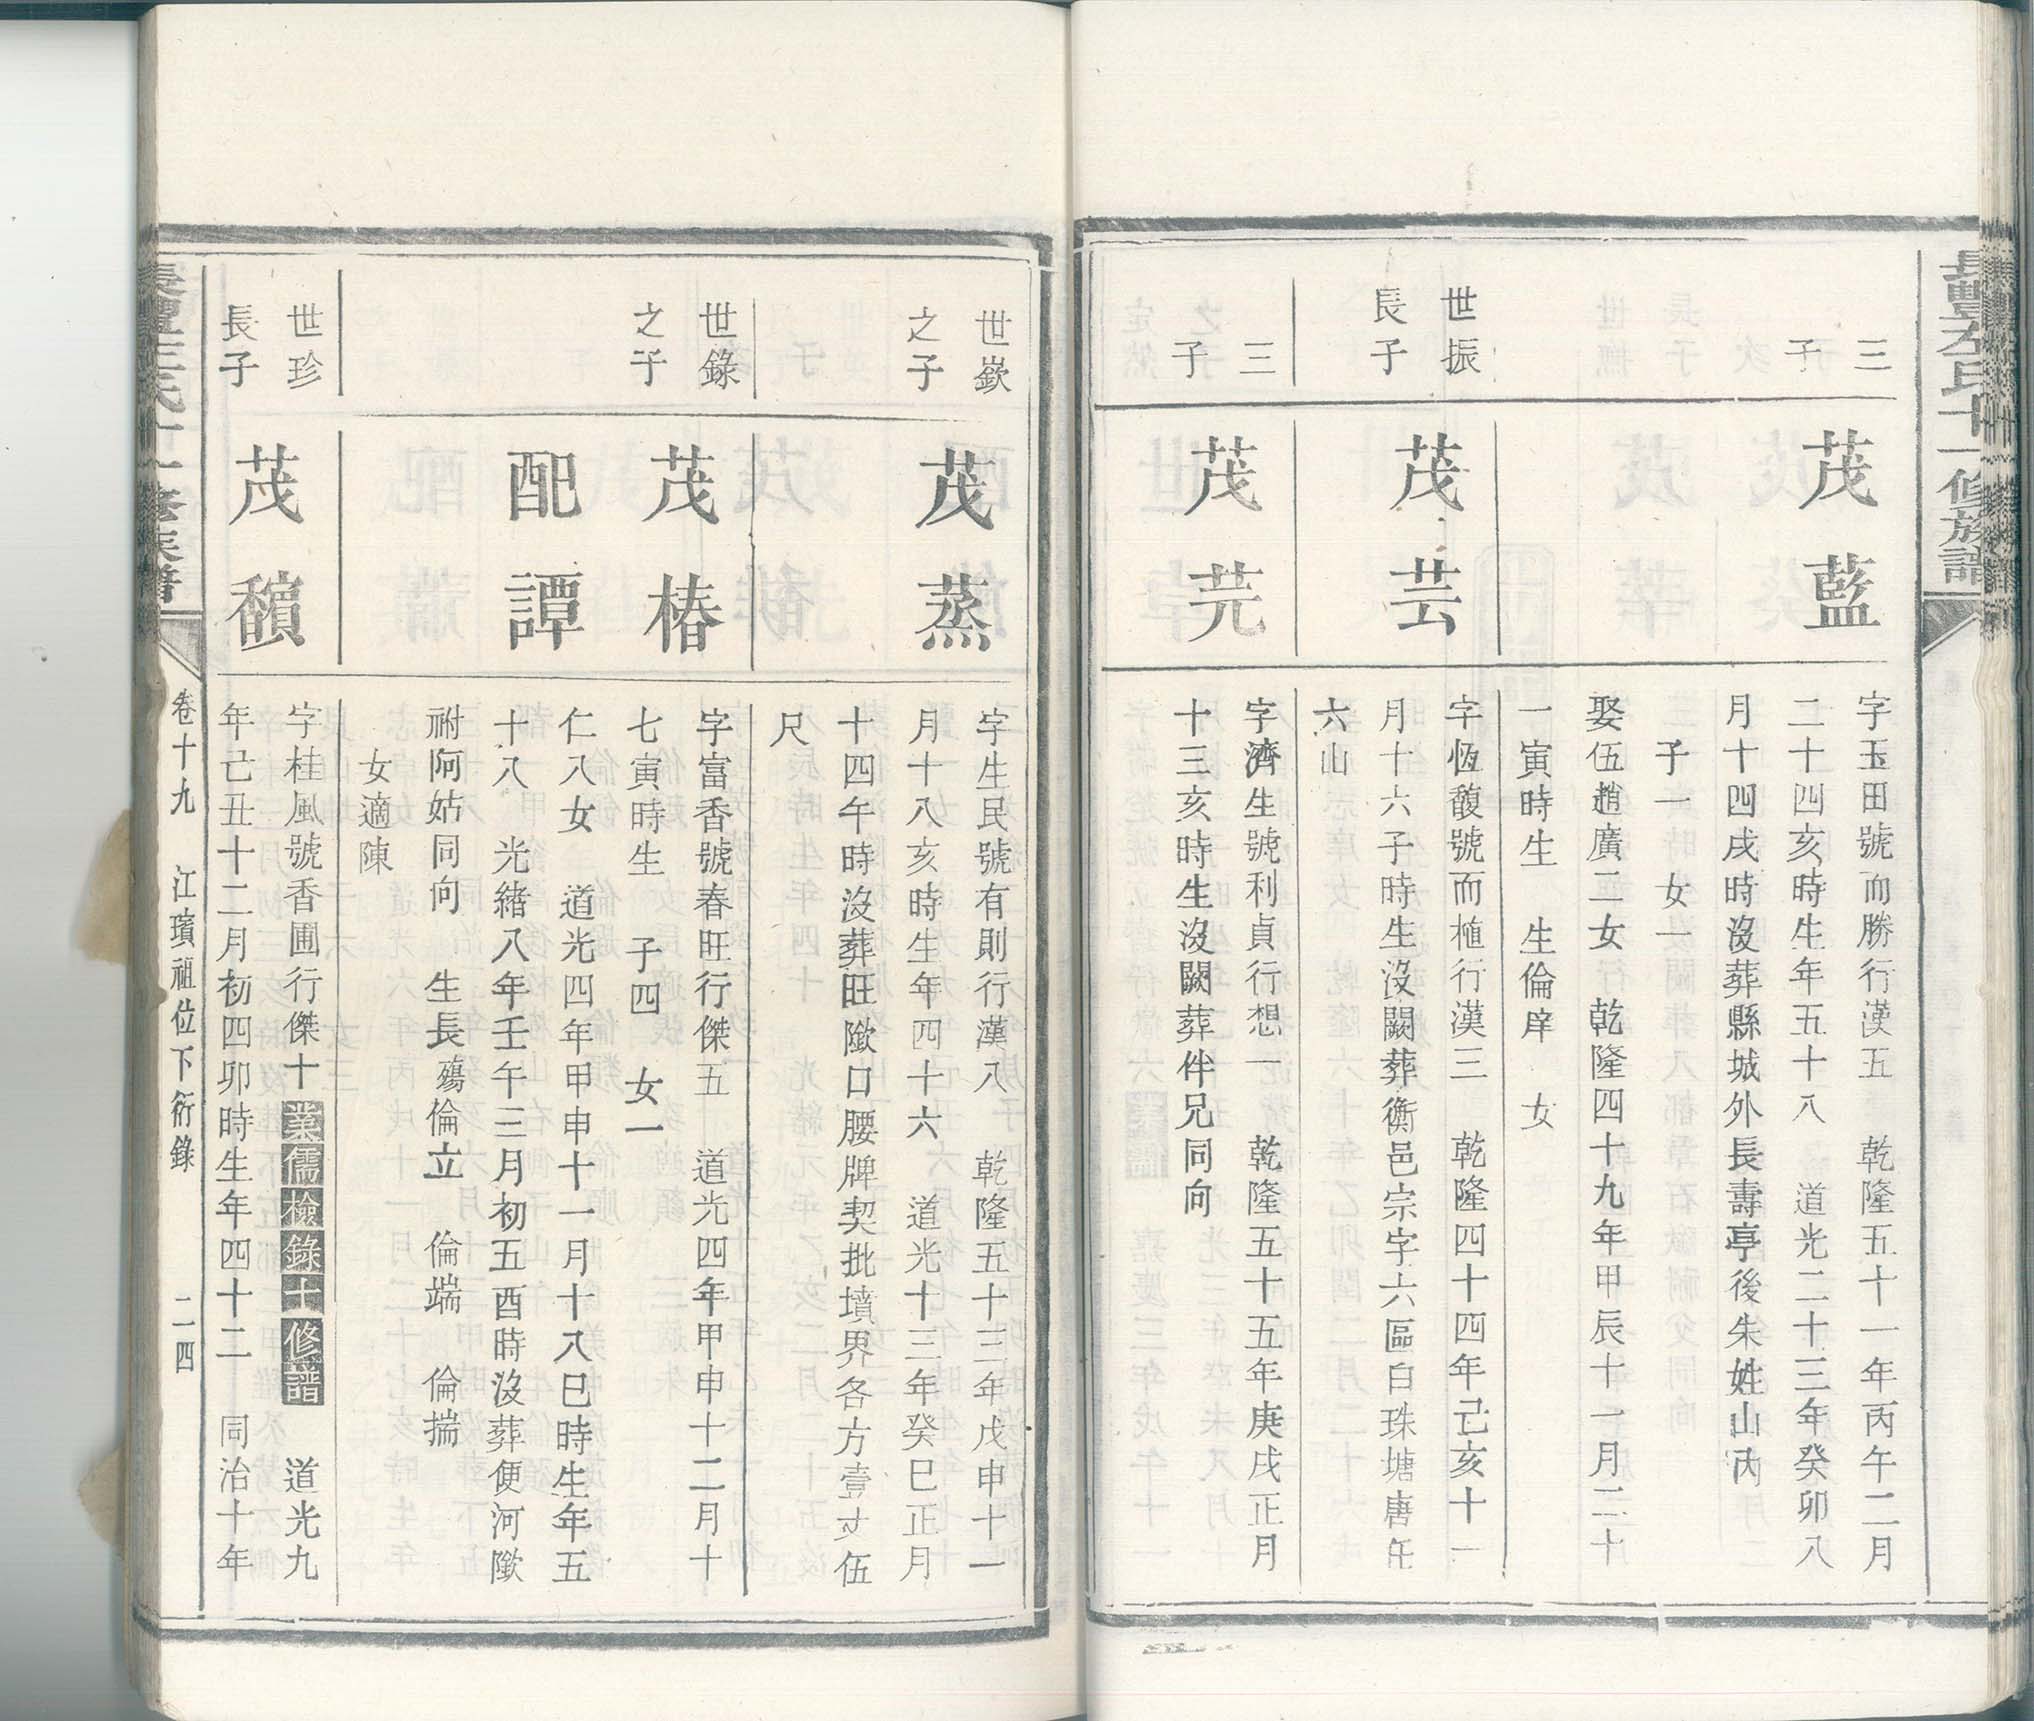 三
子
茂藍
字玉田號而勝行漢五　乾隆五十一年丙午二月
二十四亥時生年五十八　道光二十三年癸卯八
月十四戌時沒葬縣城外長壽亭後朱姓山丙
子一　女一
娶伍趙廣二女　乾隆四十九年甲辰十一月二十
一寅時生　生倫庠　女
世振
長子
茂芸
字恆馥號而植行漢三　乾隆四十四年己亥十一
月十六子時生沒闕葬衡邑宗字六區白珠塘唐任
六山
三
子
茂芫
字濟生號利貞行想一　乾隆五十五年庚戌正月
十三亥時生沒闕葬伴兄同向
世嶔
之子
茂蒸
字生民號有則行漢八　乾隆五十三年戊申十一
月十八亥時生年四十六　道光十三年癸巳正月
十四午時沒葬旺歞口腰牌契批墳界各方壹丈伍
尺
世錄
之子
茂椿
字富香號春旺行傑五　道光四年甲申十二月十
七寅時生　子四　女一
配譚
仁八女　道光四年甲申十一月十八巳時生年五
十八　光緒八年壬午三月初五酉時沒葬便河歞
祔阿姑同向　生長殤倫立　倫端　倫揣
女適陳
世珍
長子
茂䅡
字桂風號香圃行傑十業儒檢錄十修譜　道光九
年己丑十二月初四卯時生年四十二　同治十年
卷十九　江璸祖位下衍錄　二四